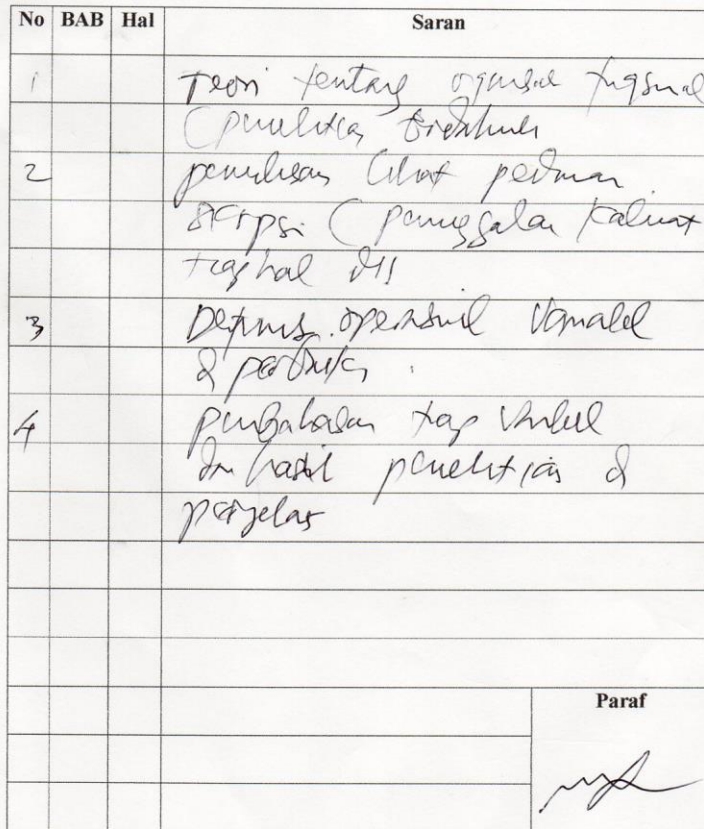 No BAB Hal Saran
1 Teori tentang
(penelitian
2 penulisan lihat pedman
skripsi (penggalan kalimat
tiap hal dll
3 Definis. operasional variabel
d perbaiki
4 pembahasan tiap variabel
dr hasil penelitian d
perjelas
Paraf